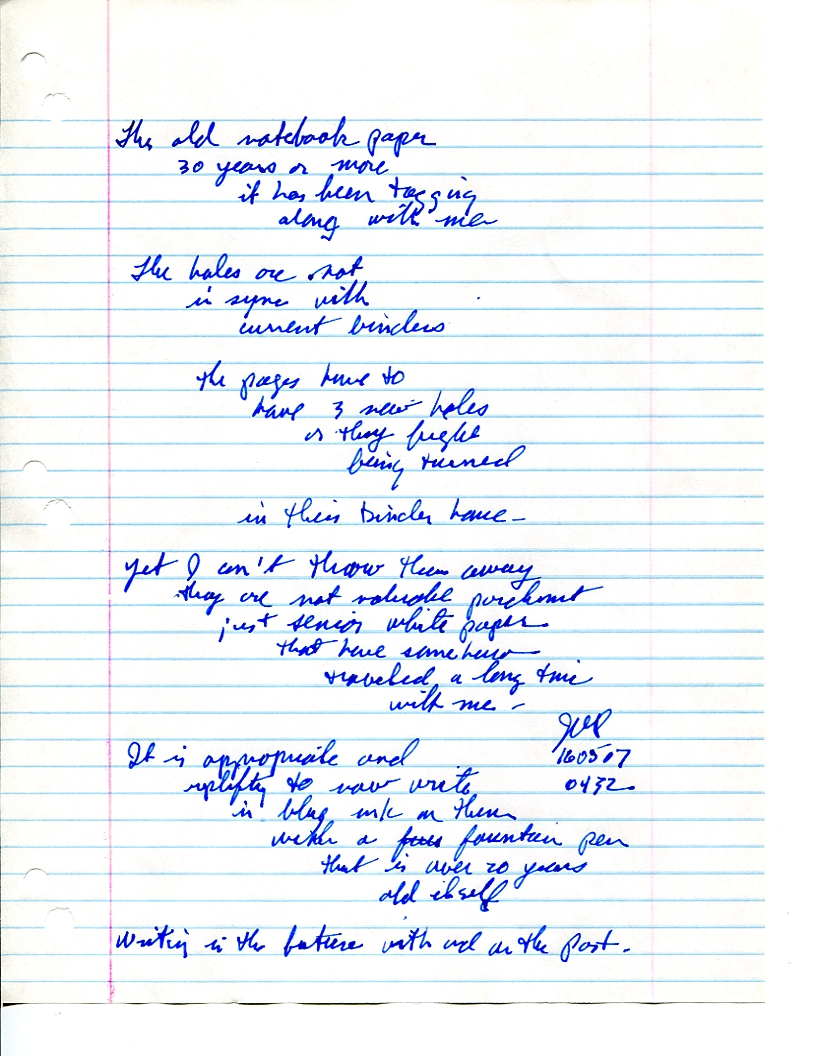 This old notebook paper
30 years or more
it has been tagging
along with me
The holes are not
in sync with
current binders
the pages have to
have 3 new holes
or they fright
being turned
in their binder home -
yet I can't throw them away
they are not valuable parchment
just senior white paper
that have somehow
traveled a long time
with me -
160507
0432
It is appropriate and
uplifting to now write
in blue ink on them
with a foun fountain pen
that is over 20 years
old itself
Writing in the future with and on the past.